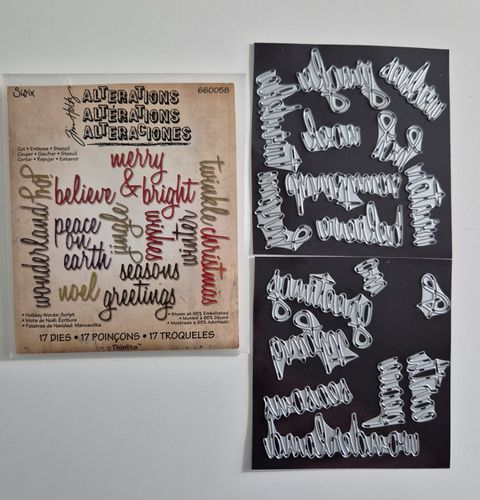 Sizzix
660058
Tim Holtz
ALTERATIONS
ALTÉRATIONS
ALTERACIONES
Cut • Emboss • Stencil
Couper • Gaufrer • Stencil
Cortar • Repujar • Estarcir
merry
believe & bright
joy
twinkle
peace
on
earth
jingle
wishes
winter
christmas
wonderland
noel
seasons
greetings
• Holiday Words: Script
• Mots de Noël: Écriture
• Palabras de Navidad: Manuscrita
• Shown at 65% Embellished
• Montré à 65% Décoré
• Mostrado a 65% Adornado
17 DIES • 17 POINÇONS • 17 TROQUELES
Thinlits